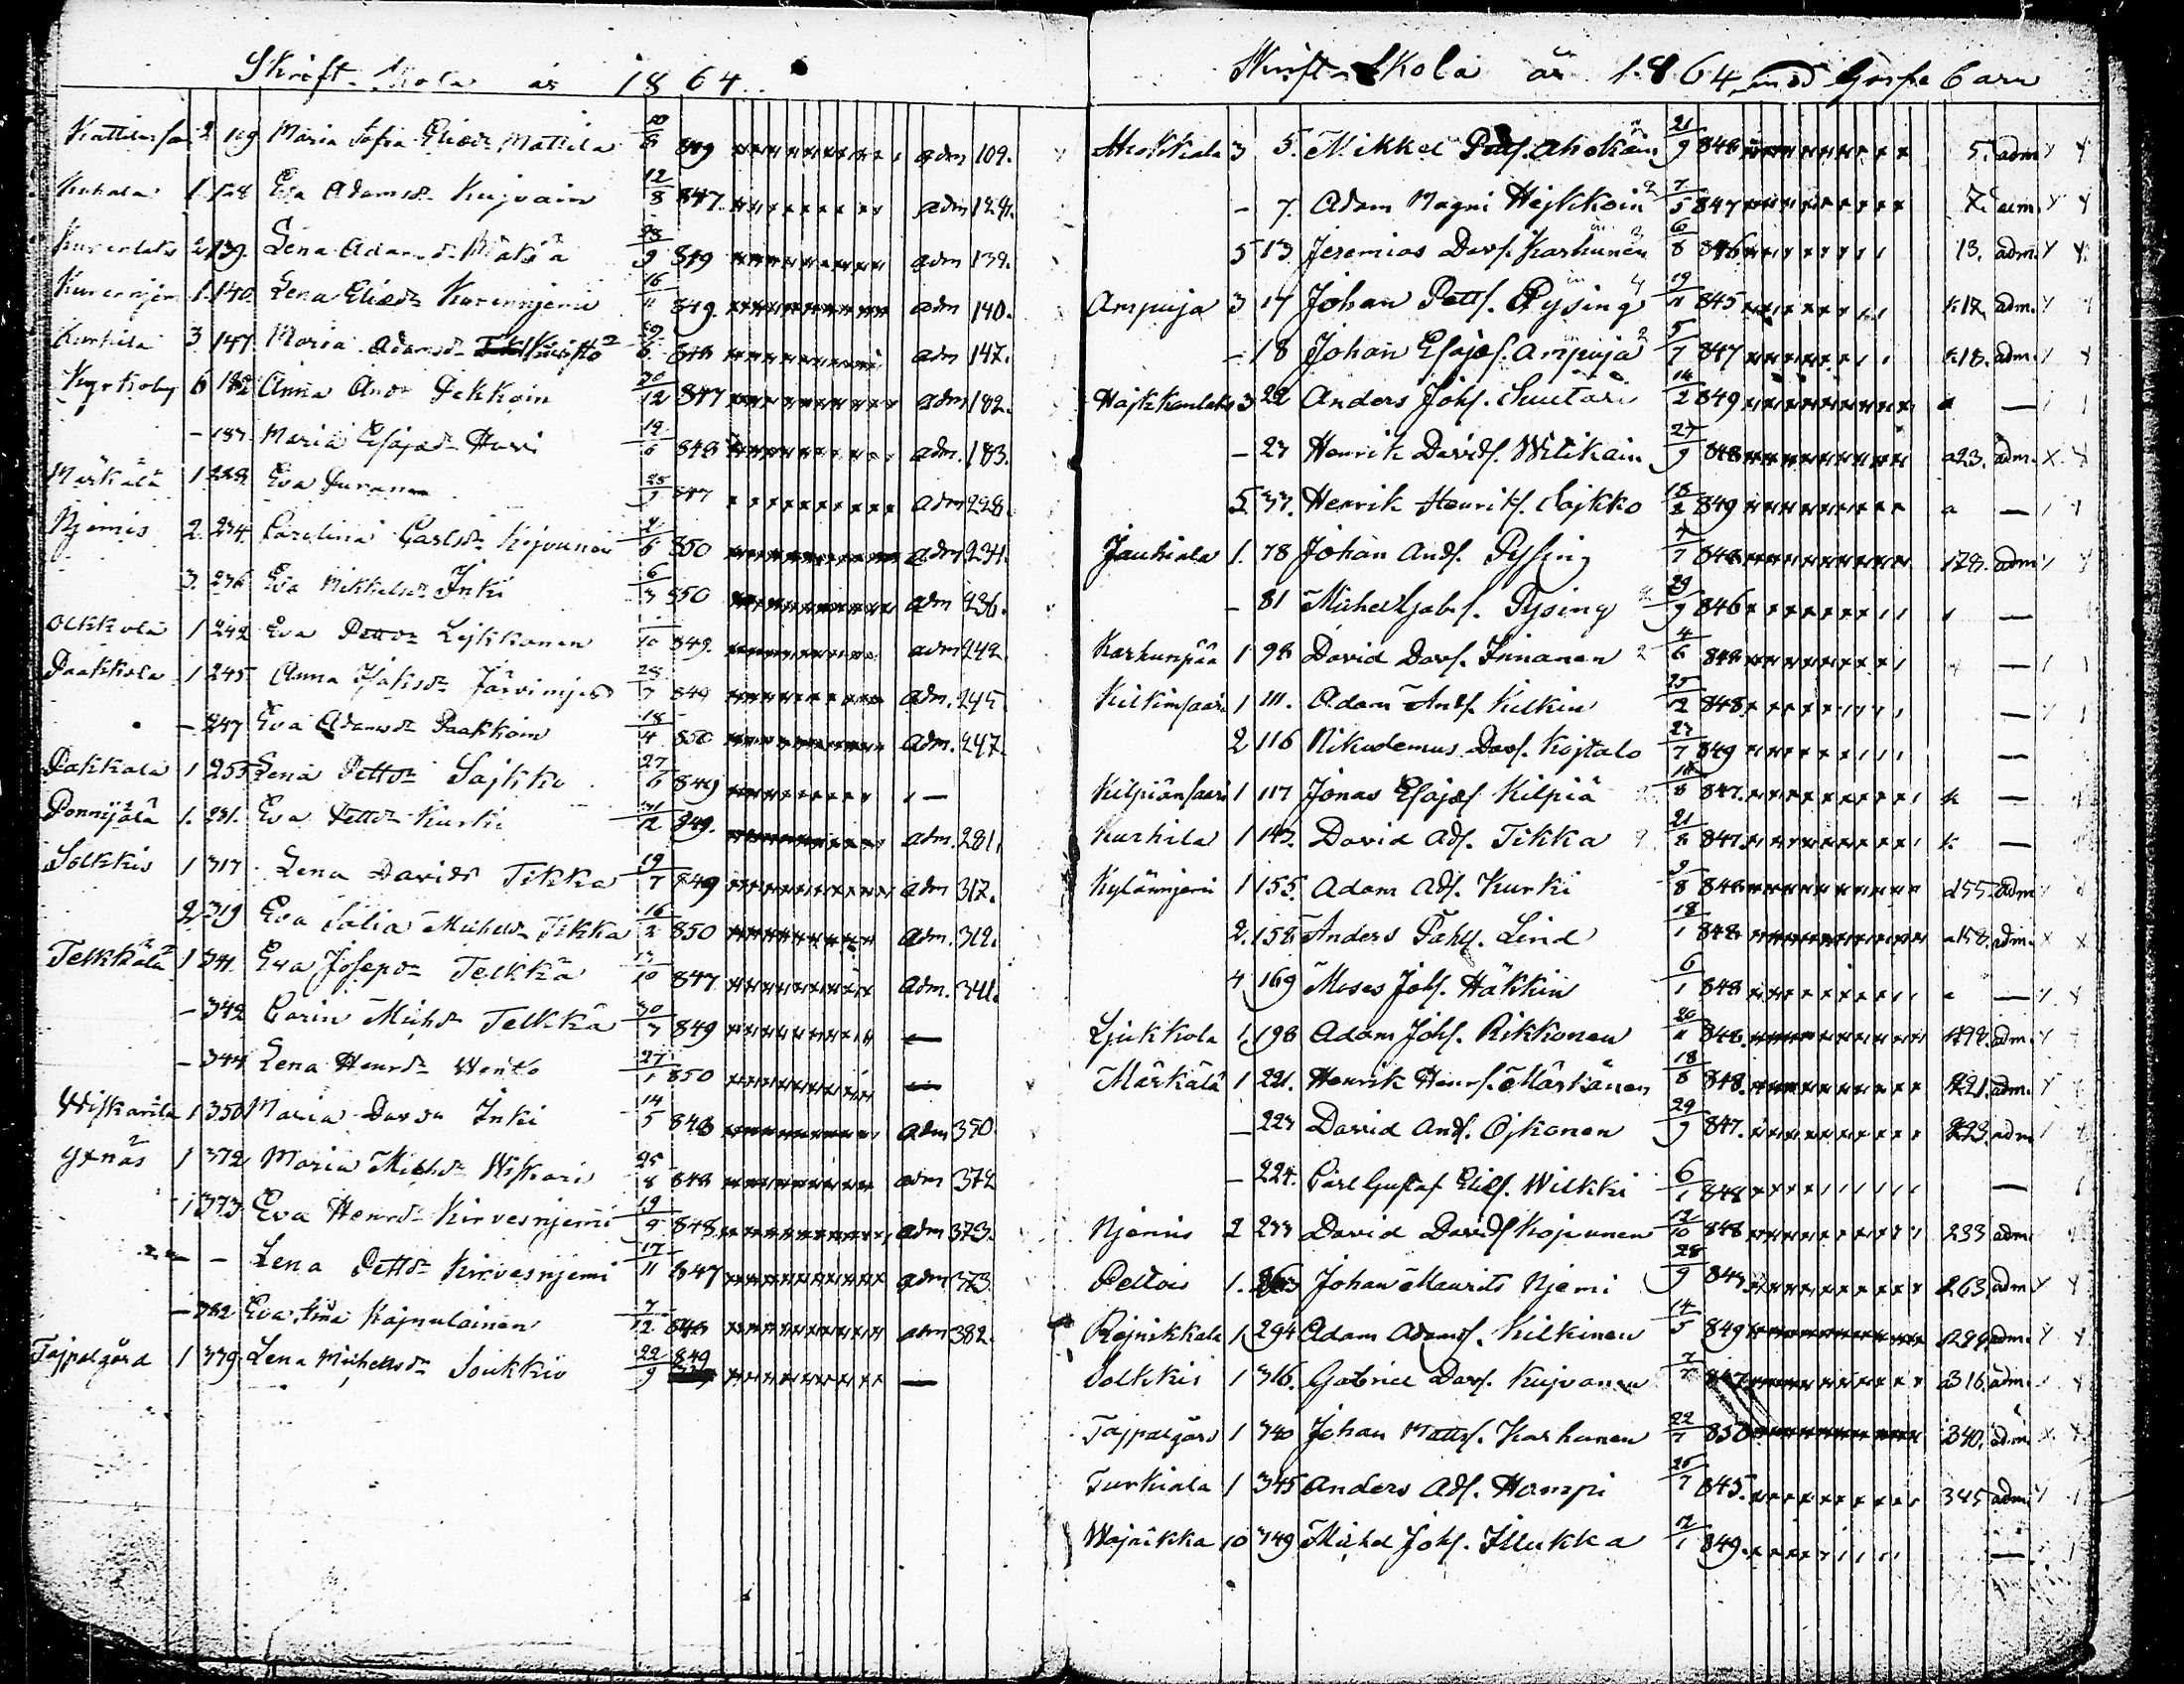 Skrift Skola år 1864.
109 Maria Sofia Eliasdr Mattila 8 849 adm 109.
Kuhala 1 128 Eva Adamsdr Kujvain 12/8 847. adm 129.
2 139. Lena Adamsdr 9 849 adm 139.
1. 140. Lena Eliasdr Kurennjemi 16/11 849. adm 140.
Kurhila 3 147 Maria Adamsdr 848 adm 147.
Kyrkoby 6 182 Anna Andr Pekkoin 30/12 847 adm 182.
- 183. Maria Esajadr 12/6 848 adm. 183.
Märkälä 1 228. Eva 847 adm 228.
Njemis 2. 234. Carolina Carlsdr Kojvunen 5 850 adm 234.
3. 236 Eva Mikkelsdr Inki 6/3 850 adm 236.
Olkkola 1 242 Eva Pettdr Lejkkonen 10 849. adm 242.
Paakkola 1 245. Anna Isaksdr 28/7 849 adm. 245.
- 247 Eva Adamsdr Paakkoin 18/4 850 adm. 247.
Pakkala 1 255 Lena Pettdr Sajkko 27/6 849 —
Ponnjälä 1. 281. Eva Pettdr Kurki 12 849. adm. 281.
Solkkis 1 317 Lena Davidr Tikka 19/7 849 adm 317.
2 319 Eva Michelsdr Tikka 16/2 850 adm. 319.
Telkkälä 1 341. Eva Josepdr Telkkä 13/10 847 adm. 341.
- 342 Carin Michdr Telkkä 30/7 849 —
- 344 Lena Henrdr Wento 27/1 850 —
1 350 Maria Davdr Inki 14/5 848 adm 350.
Yxnäs 1 372 Maria Michdr Wiskari 25/8 848 adm 372
1 373. Eva Henrdr Kirvesnjemi 19/9 848. adm 373.
- - Lena Pettdr Kirvesnjemi 17/11 847 adm 373.
- 382 Eva Kajpulainen 7/12 848 adm 382.
Tajpalgård 1 339 Lena Michelsdr Soukkio 22/9 849 —
Skrift-Skola år 1864 med Gosse barn
3 5. Mikkel 21/9 848 5. adm
- 7. Adam Magni Hejkkoin 7/5 847 7. adm.
5 13 Jeremias Davs. Karhunen 6/8 846 13. adm.
Ampuja 3 17 Johan Petts. Pysing 19/11 845 17 adm.
- 18 Johan Esajas. Ampuja 5/7 847 18. adm.
Hajkkanlahti 3 22 Anders Johs. Suutari 14/2 849 —
- 23 Henrik Davids. Wilikain 27/9 848 23. adm.
5 37. Henrik Henriks. Sajkko 18/2 849 —
Jauhiala 1. 78 Johan Ands. Pyssing 7 848 178. adm
- 81 Michel Gabs. Pysing 29/9 846 —
Karhunpää 1 98 David Davs. Innanen 4/6 848 —
Kilkinsaari 1 111. Adam Ands. Kilkin 25/12 848. —
2 116 Nikodemus Davs. Kojtalo 23/7 849 —
Kilpiänsaari 1 117 Jonas Esajas. Kilpiä 847. —
Kurhila 1 143. David Ads. Tikka 21/8 847. —
Kylännjemi 1 155. Adam Ads. Kurki 9/8 848 155. adm
2. 158. Anders Pahls. Lind 18/1 848. 158. adm.
4 169 Moses Johs. Häkkin 6/1 848 —
Ljukkola 1. 198 Adam Johs. Rikkonen 20/11 848. 198. adm.
Märkälä 1 221. Henrik Henrs. Märkänen 18/8 848. 221. adm.
- 223 David Ands. Ojkonen 29/9 847. 223. adm
- 224. Carl Gustaf Elies. Wilkki 6/1 848 —
Njemis 2 233 David Davids Kojvunen 12/10 848 233 adm
Peltois 1. 263 Johan Maurits Njemi 28/9 847 263. adm
Rajnikkala 1. 294 Adam Adams. Kilkinen 14/5 849 294. adm.
Solkkis 1 316. Gabriel Davs. Kujvanen 7/7 847 316. adm.
Tajpalgård 1 340 Johan Matts. Karhunen 22/7 850 340. adm
Turkiala 1 345 Anders Ads. Hampi 25/7 845. 345 adm.
Wajnikka 10 349 Michel Johs. Illukka 12/1 849. —